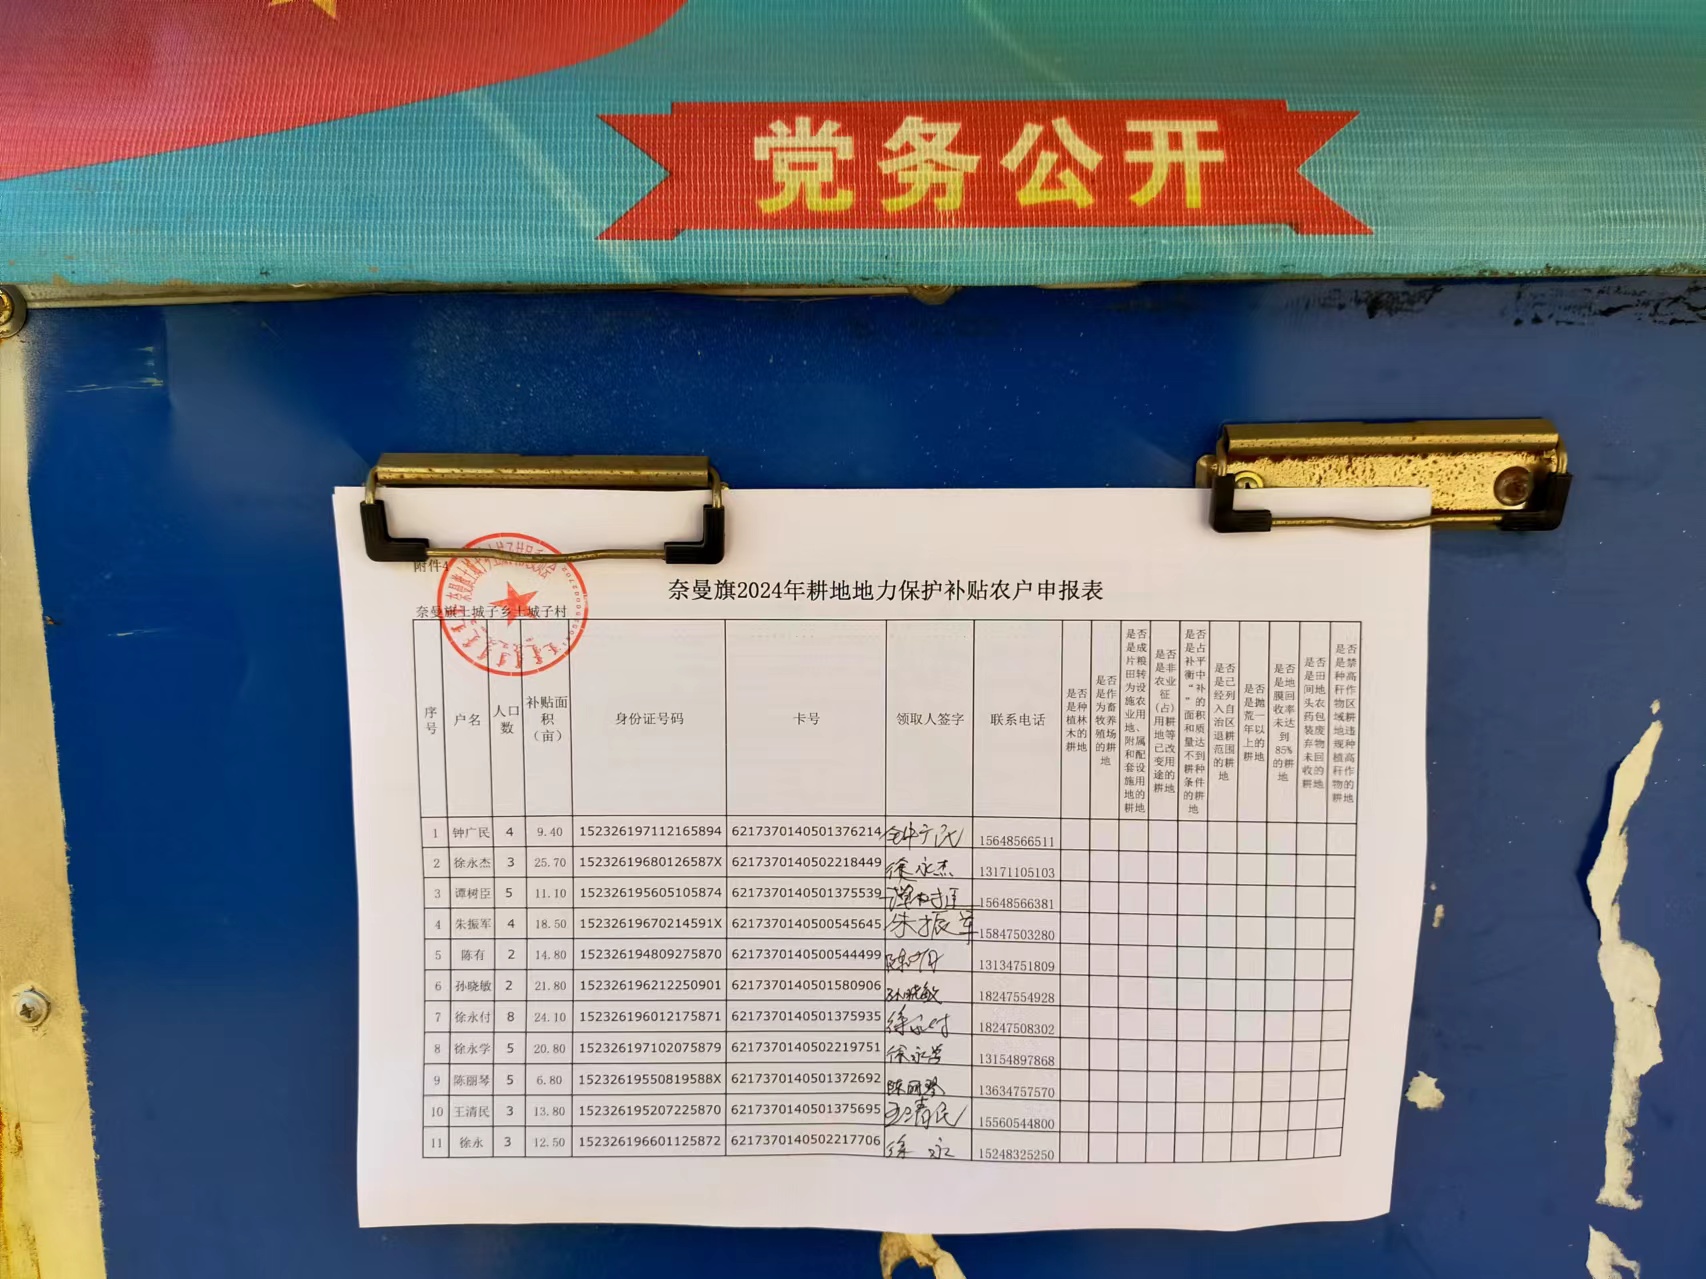 党务公开
附件4
奈曼旗2024年耕地地力保护补贴农户申报表
奈曼旗土城子乡土城子村
序号 户名 人口数 补贴面积（亩） 身份证号码 卡号 领取人签字 联系电话 是否是种植林木的耕地 是否是作为畜牧养殖场的耕地 是否是成片粮田转为设施农业用地、附属和配套设施用地的耕地 是否是非农业征(占)用耕地等已改变用途的耕地 是否是占补平衡中“补”的面积和质量达不到耕种条件的耕地 是否是已经列入自治区退耕范围的耕地 是否是抛荒一年以上的耕地 是否是地膜回收率未达到85%的耕地 是否是田间地头农药包装废弃物未回收的耕地 是否是禁种高秆作物区域耕地违规种植高秆作物的耕地
1 钟广民 4 9.40 152326197112165894 6217370140501376214 钟广民 15648566511
2 徐永杰 3 25.70 15232619680126587X 6217370140502218449 徐永杰 13171105103
3 谭树臣 5 11.10 152326195605105874 6217370140501375539 谭树臣 15648566381
4 朱振军 4 18.50 15232619670214591X 6217370140500545645 朱振军 15847503280
5 陈有 2 14.80 152326194809275870 6217370140500544499 陈有 13134751809
6 孙晓敏 2 21.80 152326196212250901 6217370140501580906 孙晓敏 18247554928
7 徐永付 8 24.10 152326196012175871 6217370140501375935 徐永付 18247508302
8 徐永学 5 20.80 152326197102075879 6217370140502219751 徐永学 13154897868
9 陈丽琴 5 6.80 15232619550819588X 6217370140501372692 陈丽琴 13634757570
10 王清民 3 13.80 152326195207225870 6217370140501375695 王清民 15560544800
11 徐永 3 12.50 152326196601125872 6217370140502217706 徐永 15248325250